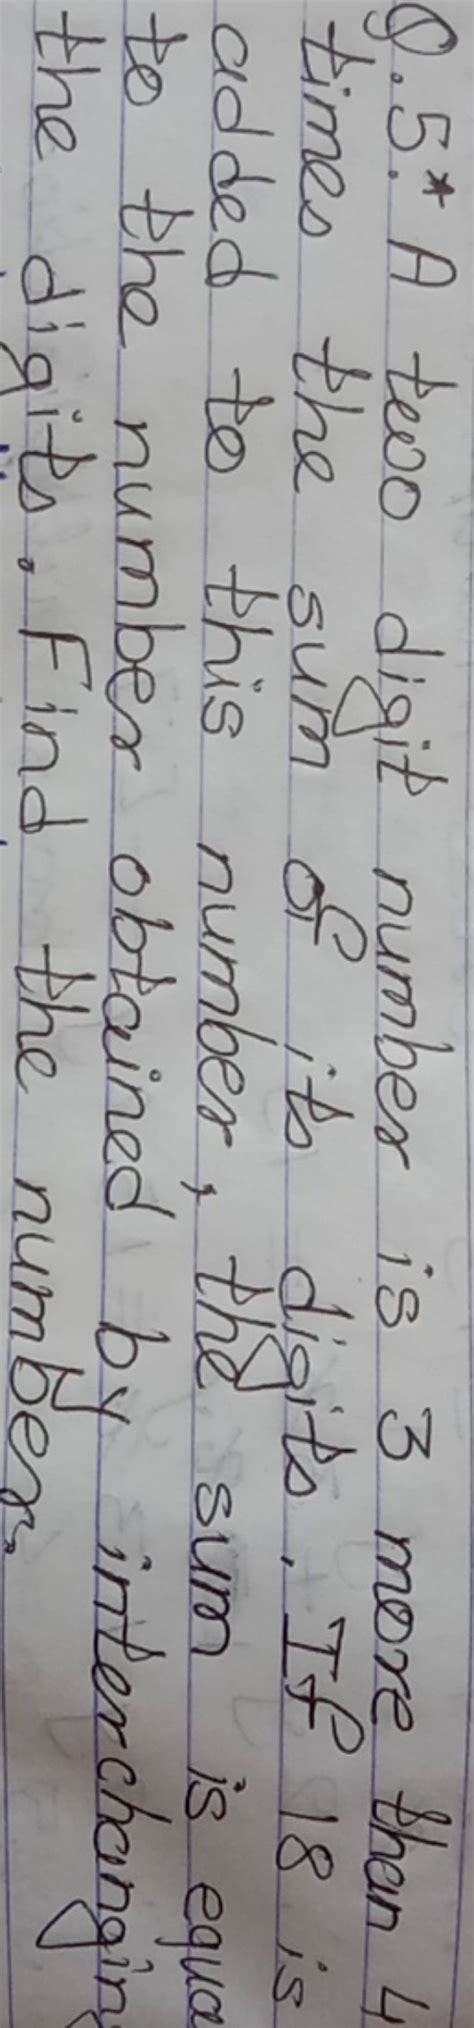 Q.5.* A two digit number is 3 more than 4
times the sum of its digits. If 18 is
added to this number, the sum is equa
to the number obtained by interchangin
the digits. Find the number.